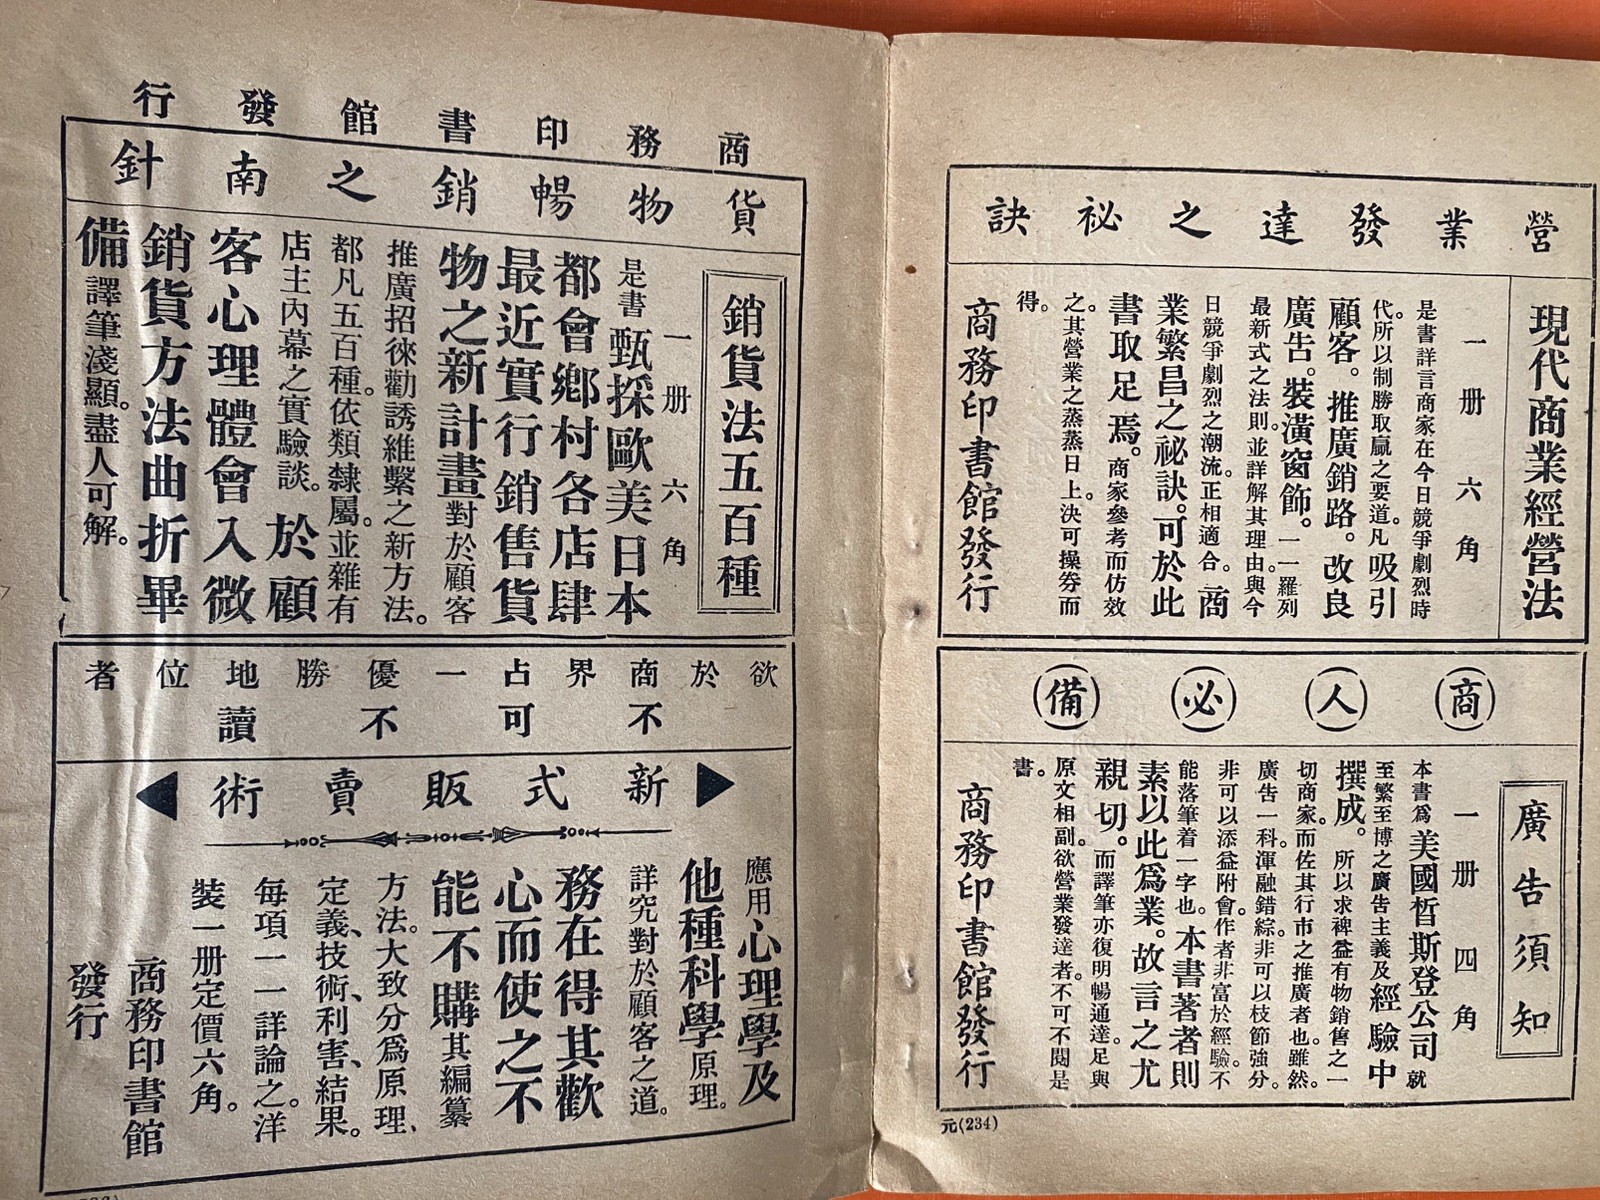 營業發達之祕訣
現代商業經營法
一册 六角
是書詳言商家在今日競爭劇烈時
代。所以制勝取贏之要道。凡吸引
顧客。推廣銷路。改良
廣告。裝潢窗飾。一一羅列
最新式之法則。並詳解其理由。與今
日競爭劇烈之潮流。正相適合。商
業繁昌之祕訣。可於此
書取足焉。商家參考而仿效
之。其營業之蒸蒸日上。決可操券而
得。
商務印書館發行
商人必備
廣告須知
一册 四角
本書爲美國皙斯登公司就
至繁至博之廣告主義及經驗中
撰成。所以求裨益有物銷售之一
切商家。而佐其行市之推廣者也。雖然。
廣告一科。渾融錯綜。非可以枝節強分。
非可以添益附會。作者非富於經驗。不
能落筆着一字也。本書著者則
素以此爲業。故言之尤
親切。而譯筆亦復明暢通達。足與
原文相副。欲營業發達者。不可不閱是
書。
商務印書館發行
元(234)
商務印書館發行
貨物暢銷之南針
銷貨法五百種
一册 六角
是書甄採歐美日本
都會鄉村各店肆
最近實行銷售貨
物之新計畫對於顧客
推廣招徠勸誘維繫之新方法。
都凡五百種。依類隸屬。並雜有
店主內幕之實驗談。於顧
客心理體會入微
銷貨方法曲折畢
備譯筆淺顯。盡人可解。
欲於商界占一優勝地位者
不可不讀
新式販賣術
應用心理學及
他種科學原理。
詳究對於顧客之道。
務在得其歡
心而使之不
能不購其編纂
方法。大致分爲原理、
定義、技術、利害、結果。
每項一一詳論之。洋
裝一册定價六角。
商務印書館
發行